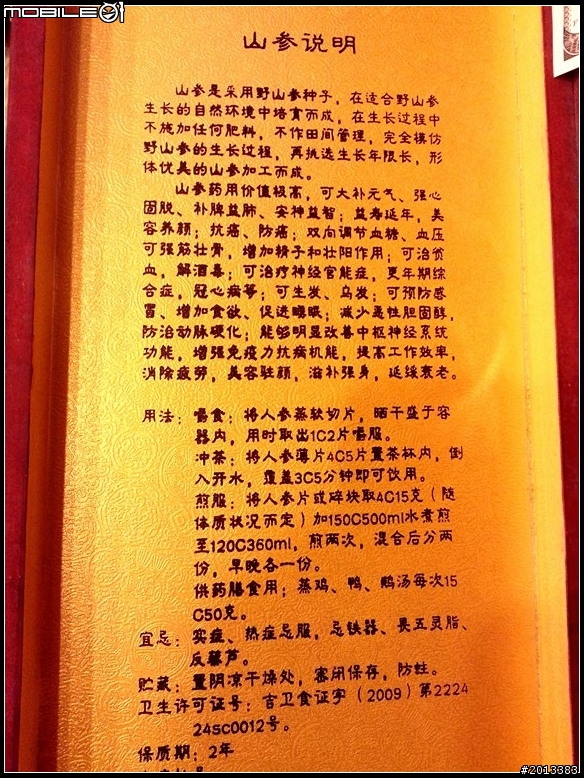 MOBILE01
山参说明
山参是采用野山参种子，在适合野山参
生长的自然环境中培育而成，在生长过程中
不施加任何肥料，不作田间管理，完全模仿
野山参的生长过程，再挑选生长年限长，形
体优美的山参加工而成。
山参药用价值极高，可大补元气、强心
固脱、补脾益肺、安神益智；益寿延年，美
容养颜；抗癌、防癌；双向调节血糖、血压
可强筋壮骨，增加精子和壮阳作用；可治贫
血，解酒毒；可治疗神经官能症，更年期综
合症，冠心病等；可生发、乌发；可预防感
冒、增加食欲、促进睡眠；减少恶性胆固醇，
防治动脉硬化；能够明显改善中枢神经系统
功能，增强免疫力抗病机能，提高工作效率，
消除疲劳，美容驻颜，滋补强身，延缓衰老。
用法：嚼食：将人参蒸软切片，晒干盛于容
器内，用时取出1C2片嚼服。
冲茶：将人参薄片4C5片置茶杯内，倒
入开水，覆盖3C5分钟即可饮用。
煎服：将人参片或碎块取4C15克（随
体质状况而定）加150C500ml水煮煎
至120C360ml，煎两次，混合后分两
份，早晚各一份。
供药膳食用；蒸鸡、鸭、鹅汤每次15
C50克。
宜忌：实症、热症忌服，忌铁器、畏五灵脂、
反藜芦。
贮藏：置阴凉干燥处，密闭保存，防蛀。
卫生许可证号：吉卫食证字（2009）第2224
24sc0012号。
保质期：2年
#2013383